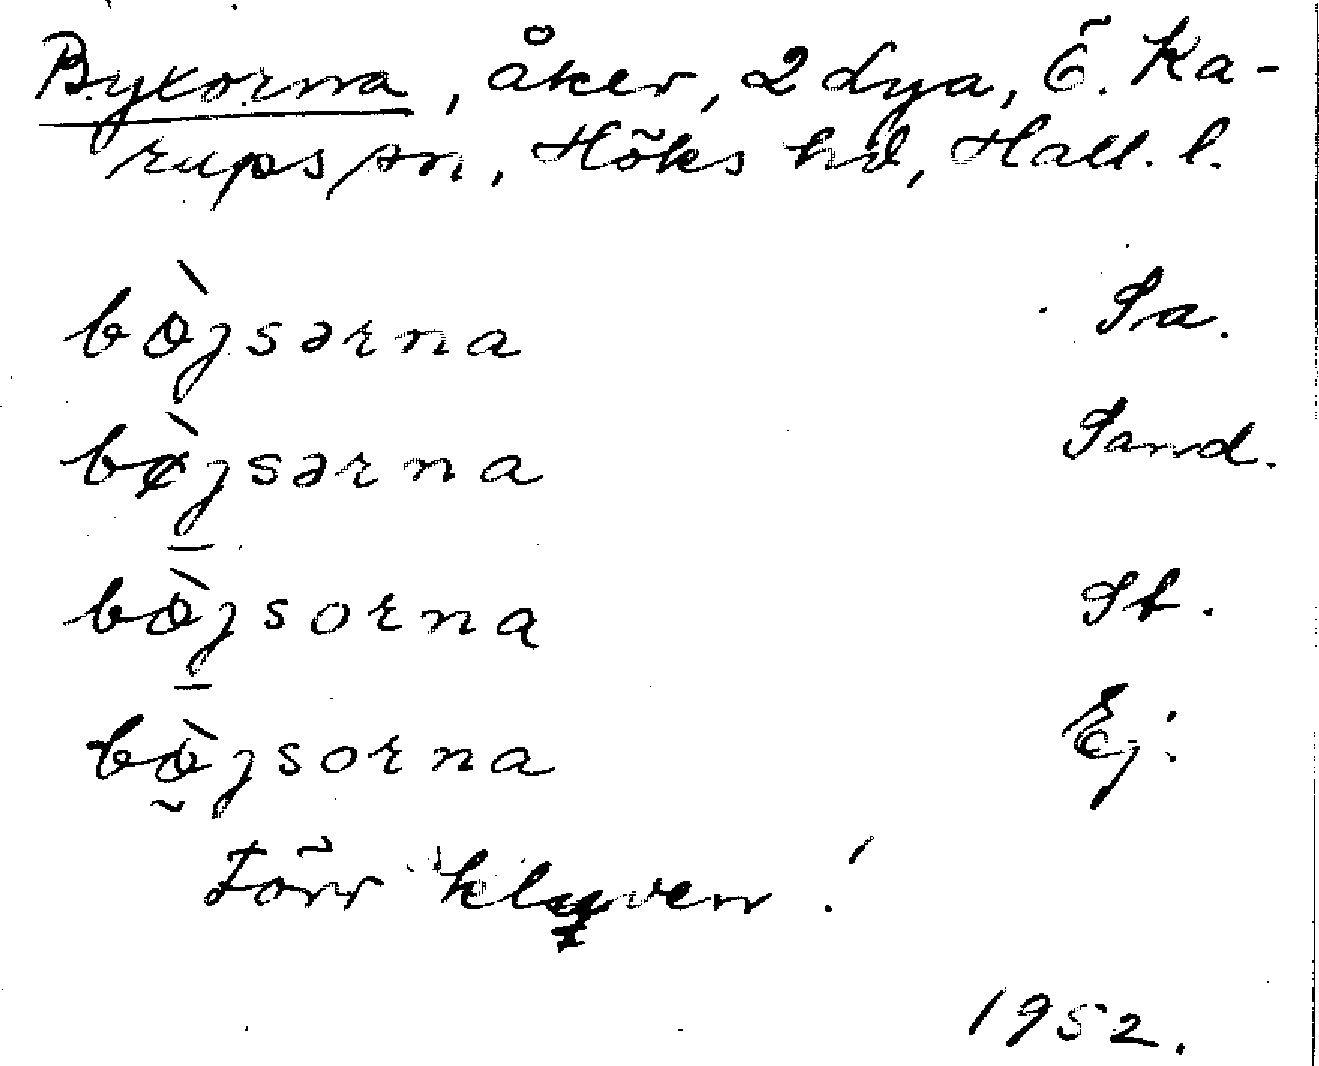 Byxorna, åker, 2 Dya, Ö. Ka-
rups sn, Höks hd, Hall. l.
bø̀jsərna Sa.
bø̀jsərna Sand.
bø̀jsorna St.
bø̀jsorna Ej.
Förr "kluven".
1952.